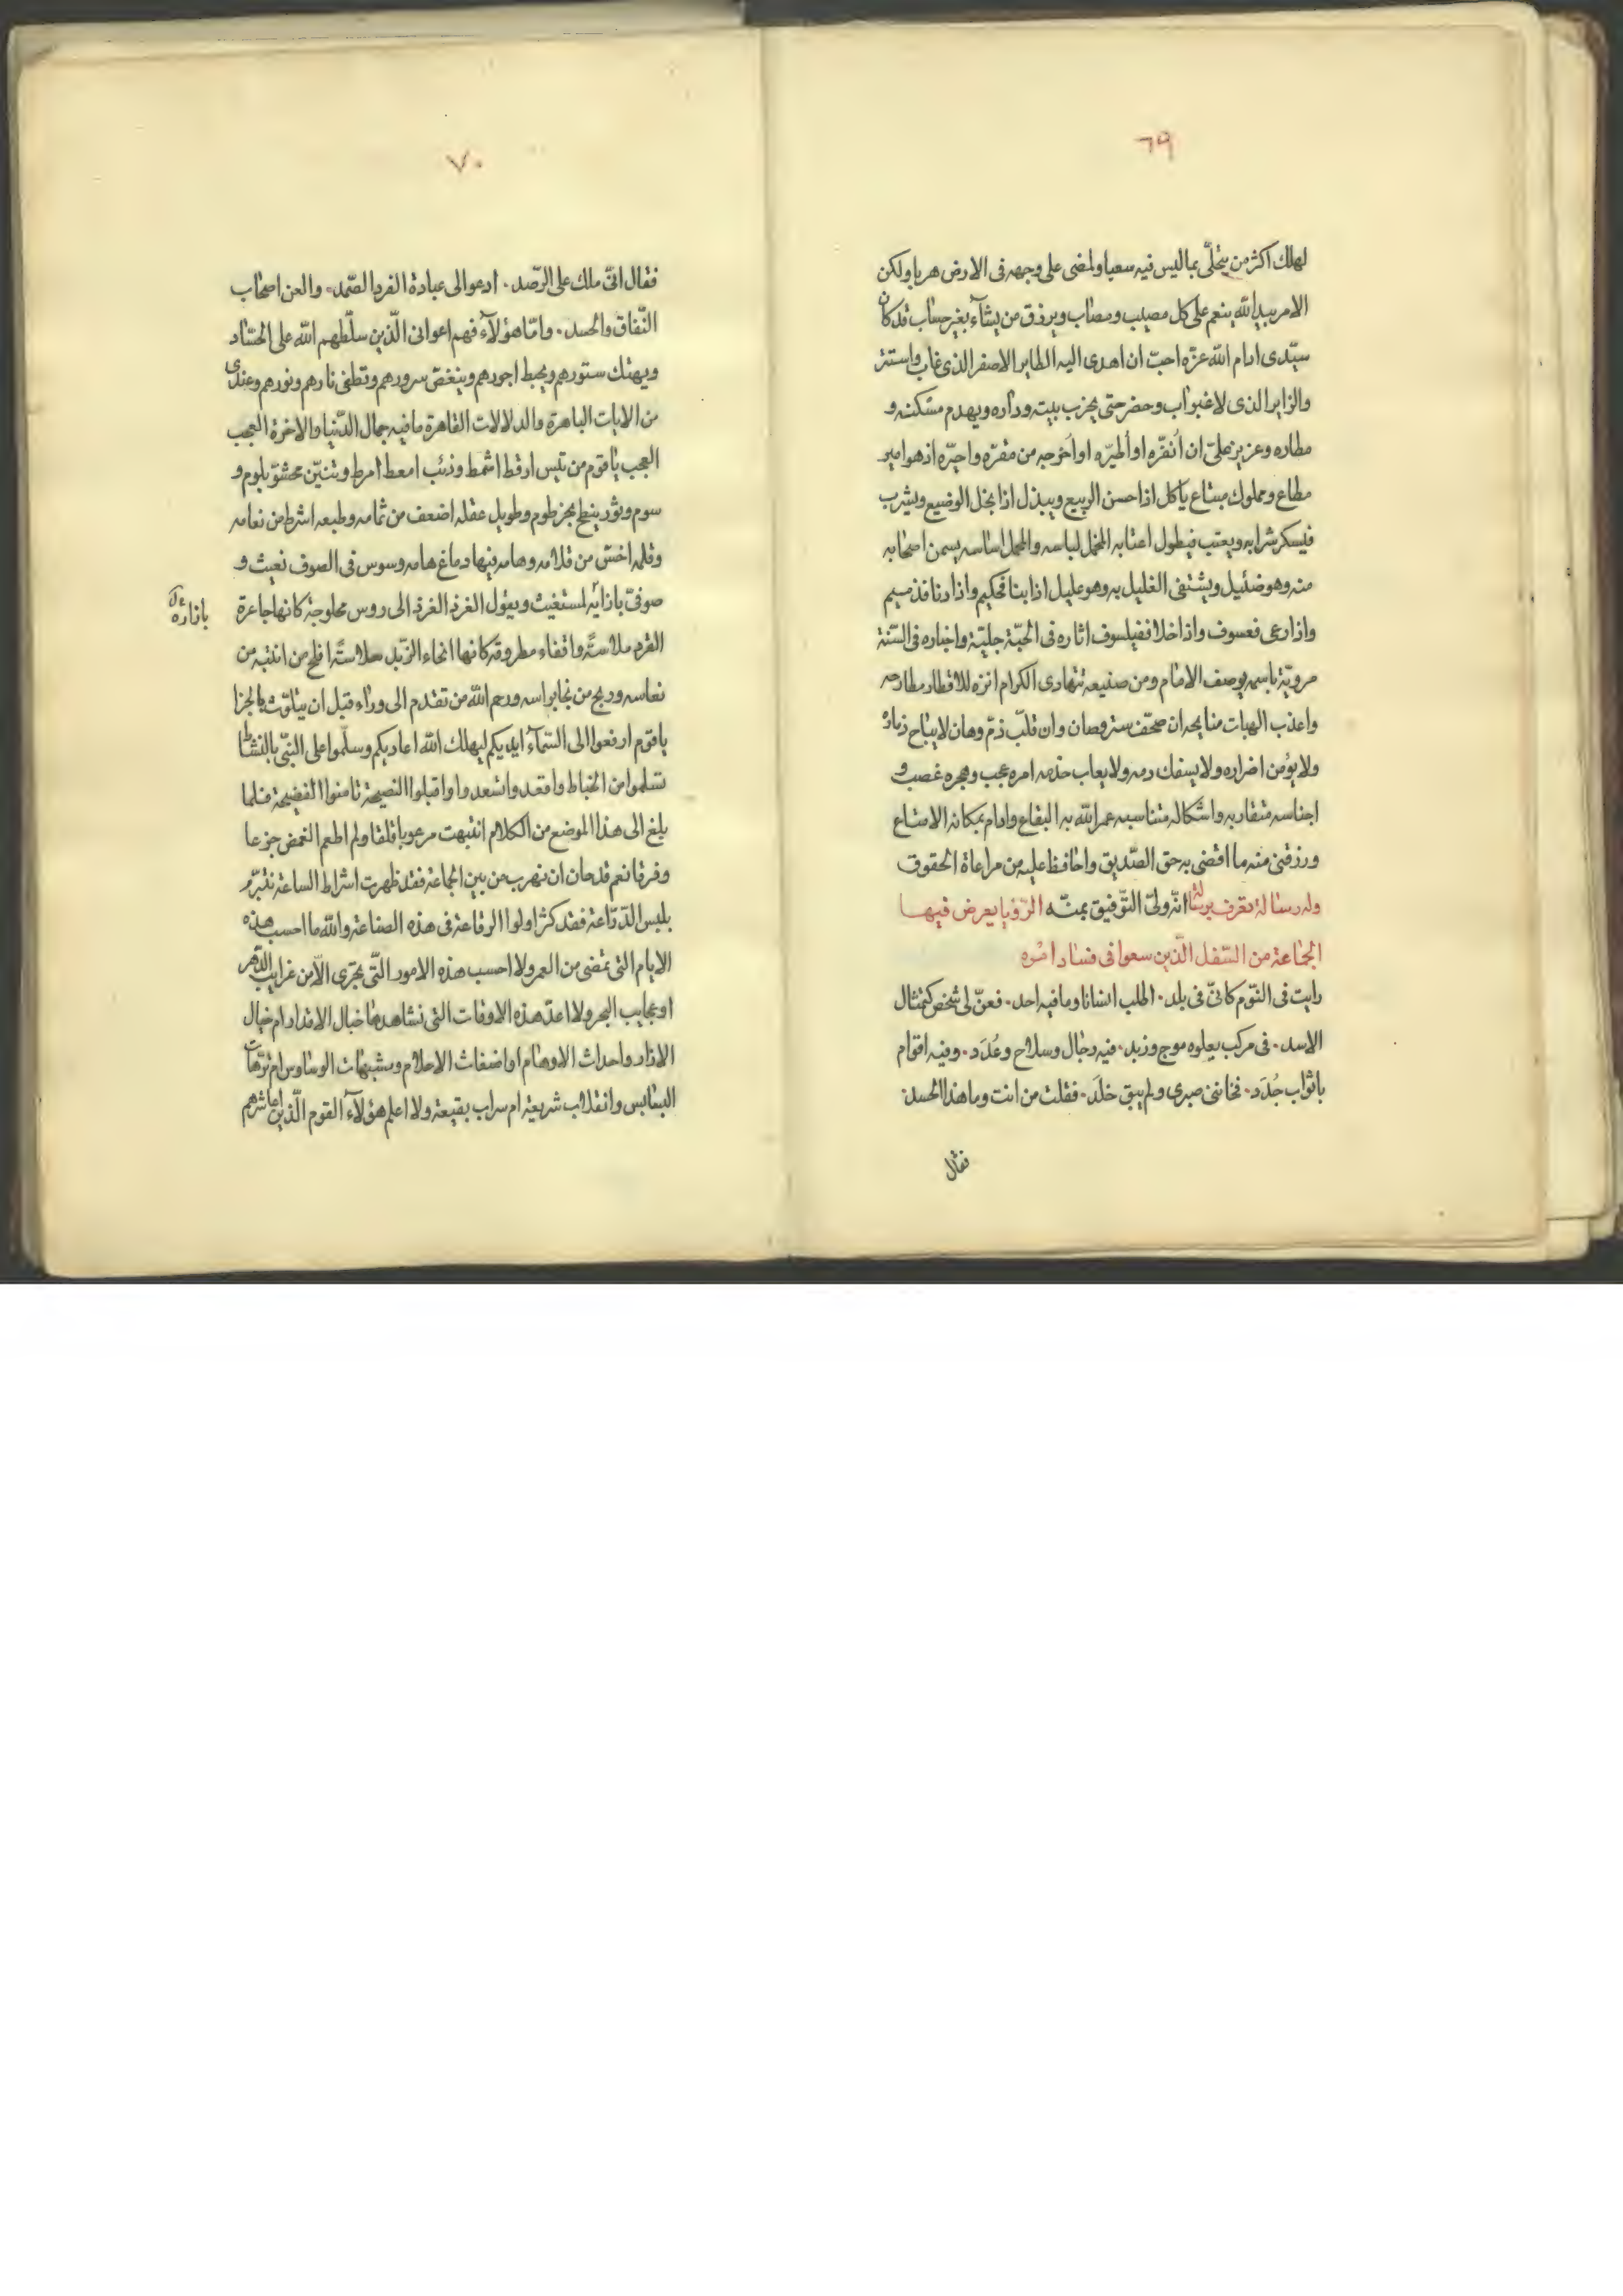 ٦٩
لهلك اكثر من يتحلّى بما ليس فيه سعيا ولمضى على وجهه فى الارض هربا ولكن
الامر بيد الله ينعم على كل مصيب ومصاب ويرزق من يشآء بغير حساب قد كان
سيّدى ادام الله عزّه احبّ ان اهدى اليه الطاير الاصفر الذى غاب واستتر
والزاير الذى لا غبّ وآب وحضر حتى يخرب بيته وداره ويهدم مسكنه و
مطاره وعزيز علىّ ان أنفّره او أطيّره او أخرجه من مقرّه واحيّره اذ هو امير
مطاع ومملوك مبتاع ياكل اذا حسن الربيع ويبذل اذا بخل الوضيع ويشرب
فيسكر شرابه ويعتب فيطول اعتابه المخمل لباسه والمحمل اساسه يسمن اصحابه
منه وهو ضئيل ويشتفى الغليل به وهو عليل اذا بنا فحكيم واذا دنا فنديم
واذا رعى فعسوف واذا خلا ففيلسوف اثاره فى الحبّة جليّة واخباره فى السّنة
مرويّة باسمه يوصف الامام ومن صنيعه تتهادى الكرام انزه للاقطار مطارحه
واعذب الهبات منايحه ان صحّف ستر وصان وان قلّب ذمّ وهان لا يباح ذماره
ولا يؤمن اضراره ولا يسفك دمه ولا يعاب خدمه امره عجب وهجره غصب و
اجناسه متقاربه واشكاله متناسبه عمر الله به البقاع وادام بمكانه الامتاع
ورزقنى منه ما اقضى به حق الصّديق واحافظ عليه من مراعاة الحقوق
انّه ولىّ التّوفيق بمنّه وله رسالة تعرف برسالة الرّؤيا يعرض فيها
الجماعة من السّفل الّذين سعوا فى فساد امره
رايت فى النّوم كانّى فى بلد۰ اطلب انسانا وما فيه احد۰ فعنّ لى شخص كتمثال
الاسد۰ فى مركب يعلوه موج وزبد۰ فيه رجال وسلاح وعُدَد۰ وفيه اقوام
باثواب جُدَد۰ فخاننى صبرى ولم يبق خلَد۰ فقلت من انت وما هذا الحسد
فقال
٧٠
فقال انّى ملك على الرّصد۰ ادعو الى عبادة الفرد الصّمد۰ والعن اصحاب
النّفاق والحسد۰ وامّا هؤلآء فهم اعوانى الّذين سلّطهم الله على الحسّاد
ويهتك ستورهم ويحبط اجورهم وينغّص سرورهم وتطفى نارهم ونورهم وعندى
من الايات الباهرة والدلالات القاهرة ما فيه جمال الدّنيا والاخرة العجب
العجب يا قوم من تيس ارقط اشمط وذئب امعط امرط وتنّين محشوّ بلوم و
سوم وثور ينطح بخرطوم وطويل عقله اضعف من ثمامه وطبعه اشرط من نعامه
وقلمه اخسّ من قلامه وهامه فيها دماغ هامه وسوس فى الصوف نعيث و
صوفىّ بازآئه لمستغيث ويقول الغرد الغرد الى روس محلوجة كانها جاعرة
بازاره
القرد ملاسةً واقفاء مطروقة كانها انحاء الزّبد سلاسةً افلح من انتبه من
نعاسه وربح من نجا براسه ورحم الله من تقدم الى ورآء قبل ان يتلوّث بالخرا
يا قوم ارفعوا الى السّمآء ايديكم ليهلك الله اعاديكم وسلّموا على النبىّ بالنشاط
تسلموا من الخباط واقعدوا تسعدوا واقبلوا النصيحة تامنوا الفضيحة فلما
بلغ الى هذا الموضع من الكلام انتبهت مرعوبا قلقا ولم اطعم الغمض جزعا
وفرقا نعم قد حان ان نهرب من بين الجماعة فقد ظهرت اشراط الساعة نتبرّم
بلبس الدّرّاعة فقد كثر اولوا الرقاعة فى هذه الصناعة والله ما احسب هذه
الايام التى تمضى من العمر ولا احسب هذه الامور التّى تجرى الّا من غرايب الدّهر
او عجايب البحر ولا اعدّ هذه الاوقات التى نشاهدها خبال الاقدار ام خيال
الاذار واحداث الاوهام او اضغاث الاحلام وشبهات الوساوس ام ترّهات
البسابس وانقلاب شريعة ام سراب بقيعة ولا اعلم هؤلآء القوم الّذين اعاشرهم